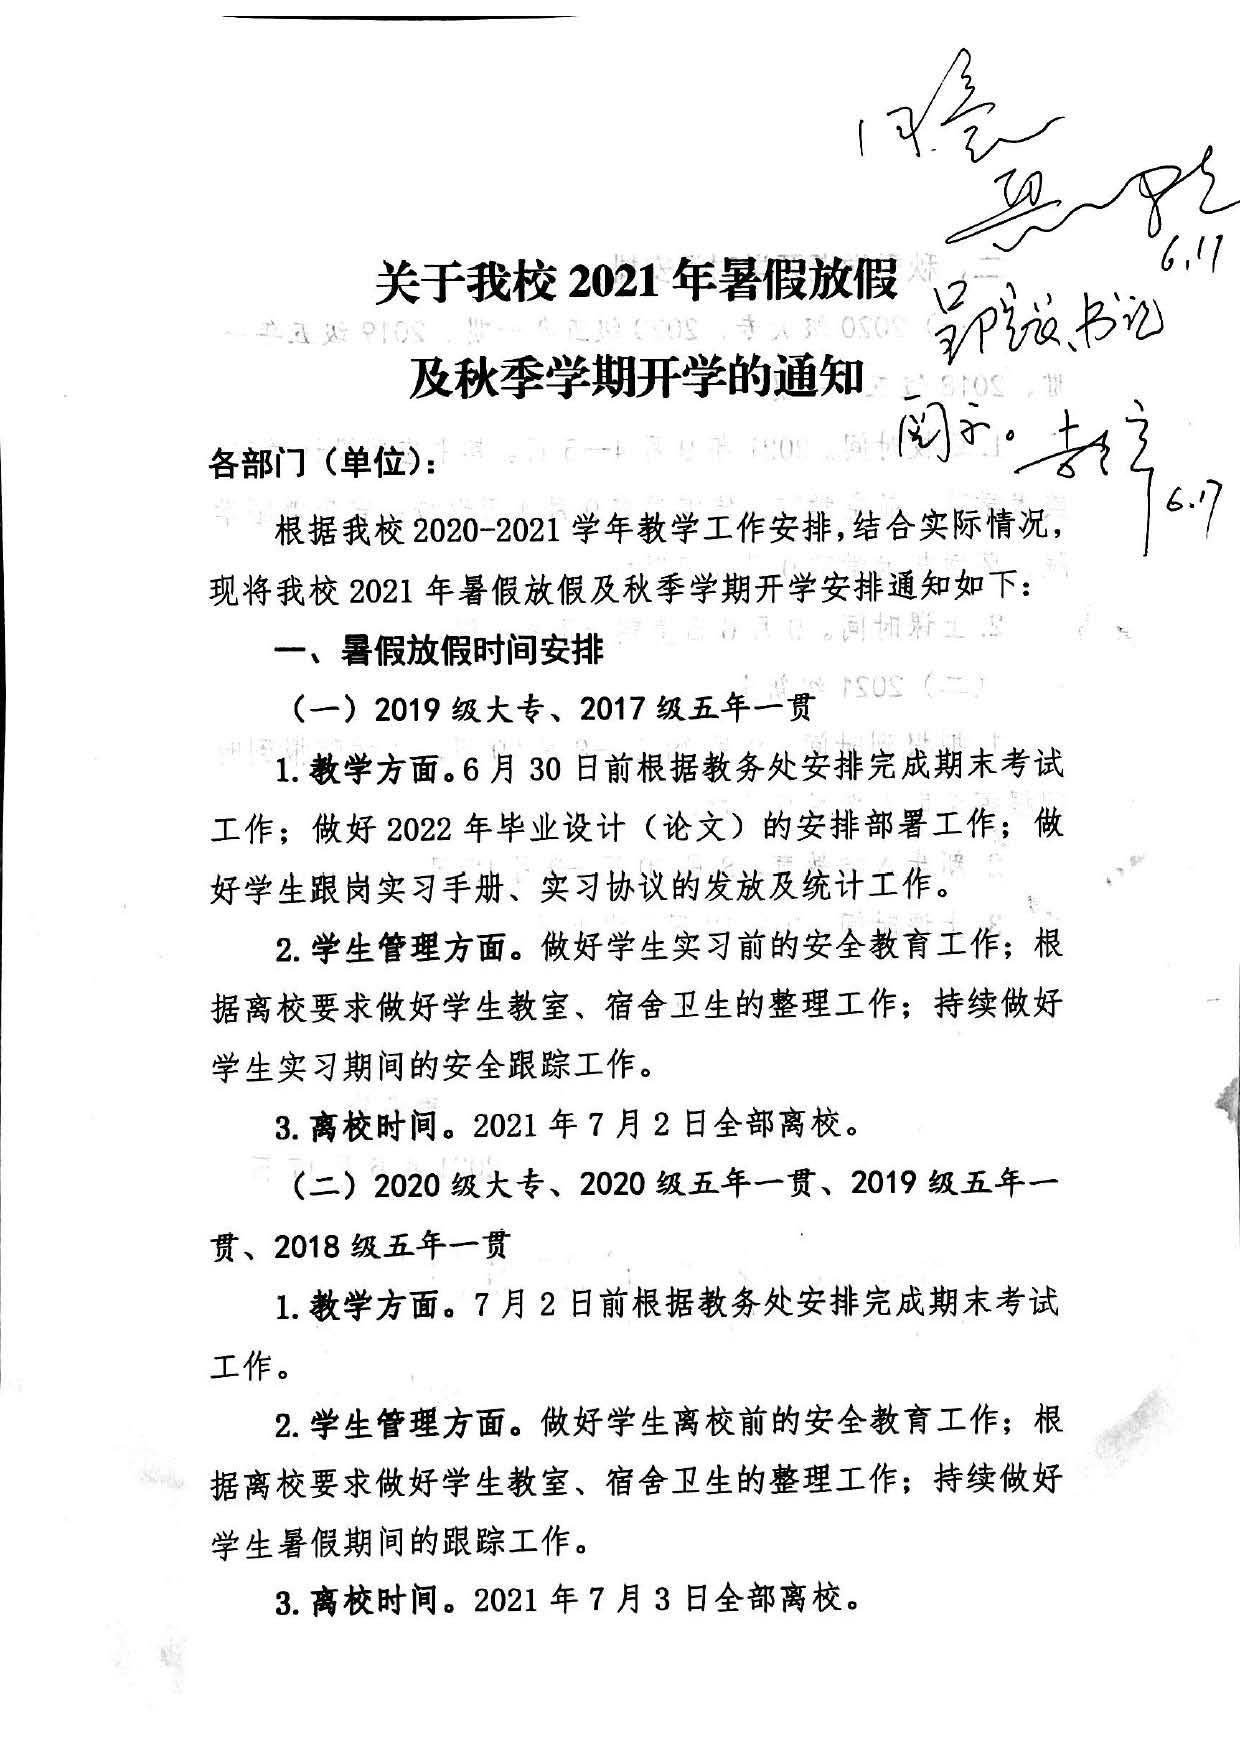 同意
6.17
关于我校 2021 年暑假放假
及秋季学期开学的通知
书记
阅示。
6.17
各部门（单位）：
根据我校 2020-2021 学年教学工作安排，结合实际情况，
现将我校 2021 年暑假放假及秋季学期开学安排通知如下：
一、暑假放假时间安排
（一）2019 级大专、2017 级五年一贯
1. 教学方面。6 月 30 日前根据教务处安排完成期末考试
工作；做好 2022 年毕业设计（论文）的安排部署工作；做
好学生跟岗实习手册、实习协议的发放及统计工作。
2. 学生管理方面。做好学生实习前的安全教育工作；根
据离校要求做好学生教室、宿舍卫生的整理工作；持续做好
学生实习期间的安全跟踪工作。
3. 离校时间。2021 年 7 月 2 日全部离校。
（二）2020 级大专、2020 级五年一贯、2019 级五年一
贯、2018 级五年一贯
1. 教学方面。7 月 2 日前根据教务处安排完成期末考试
工作。
2. 学生管理方面。做好学生离校前的安全教育工作；根
据离校要求做好学生教室、宿舍卫生的整理工作；持续做好
学生暑假期间的跟踪工作。
3. 离校时间。2021 年 7 月 3 日全部离校。